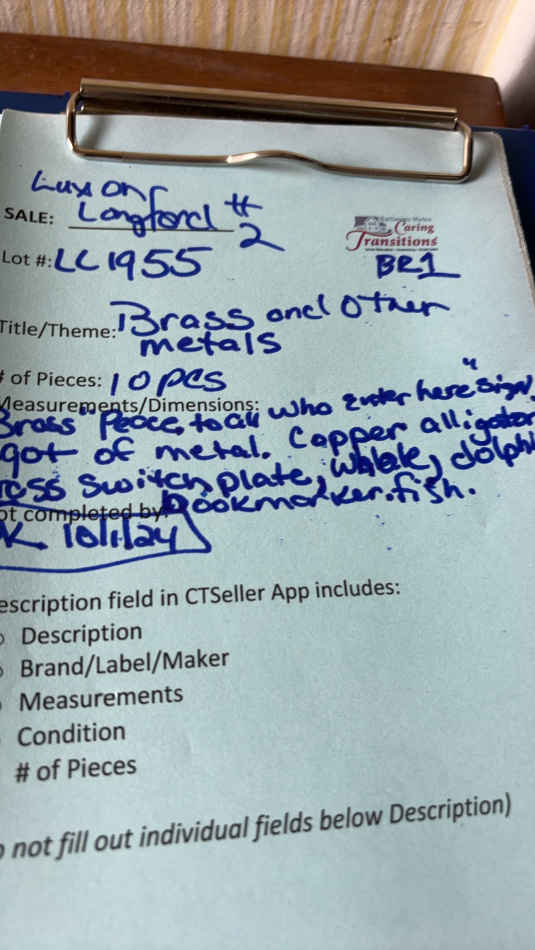 Luxon
SALE: Longford #2
Caring
Transitions
Lot #: LC1955
BR1
Title/Theme: Brass and other
metals
# of Pieces: 10 pcs
Measurements/Dimensions:
Brass "Peace to all who enter here" sign,
got of metal. Copper alligator
ass switch plate, whale, dolph
ot completed by: bookmarker. fish.
K 10/1/24
escription field in CTSeller App includes:
Description
Brand/Label/Maker
Measurements
Condition
# of Pieces
o not fill out individual fields below Description)